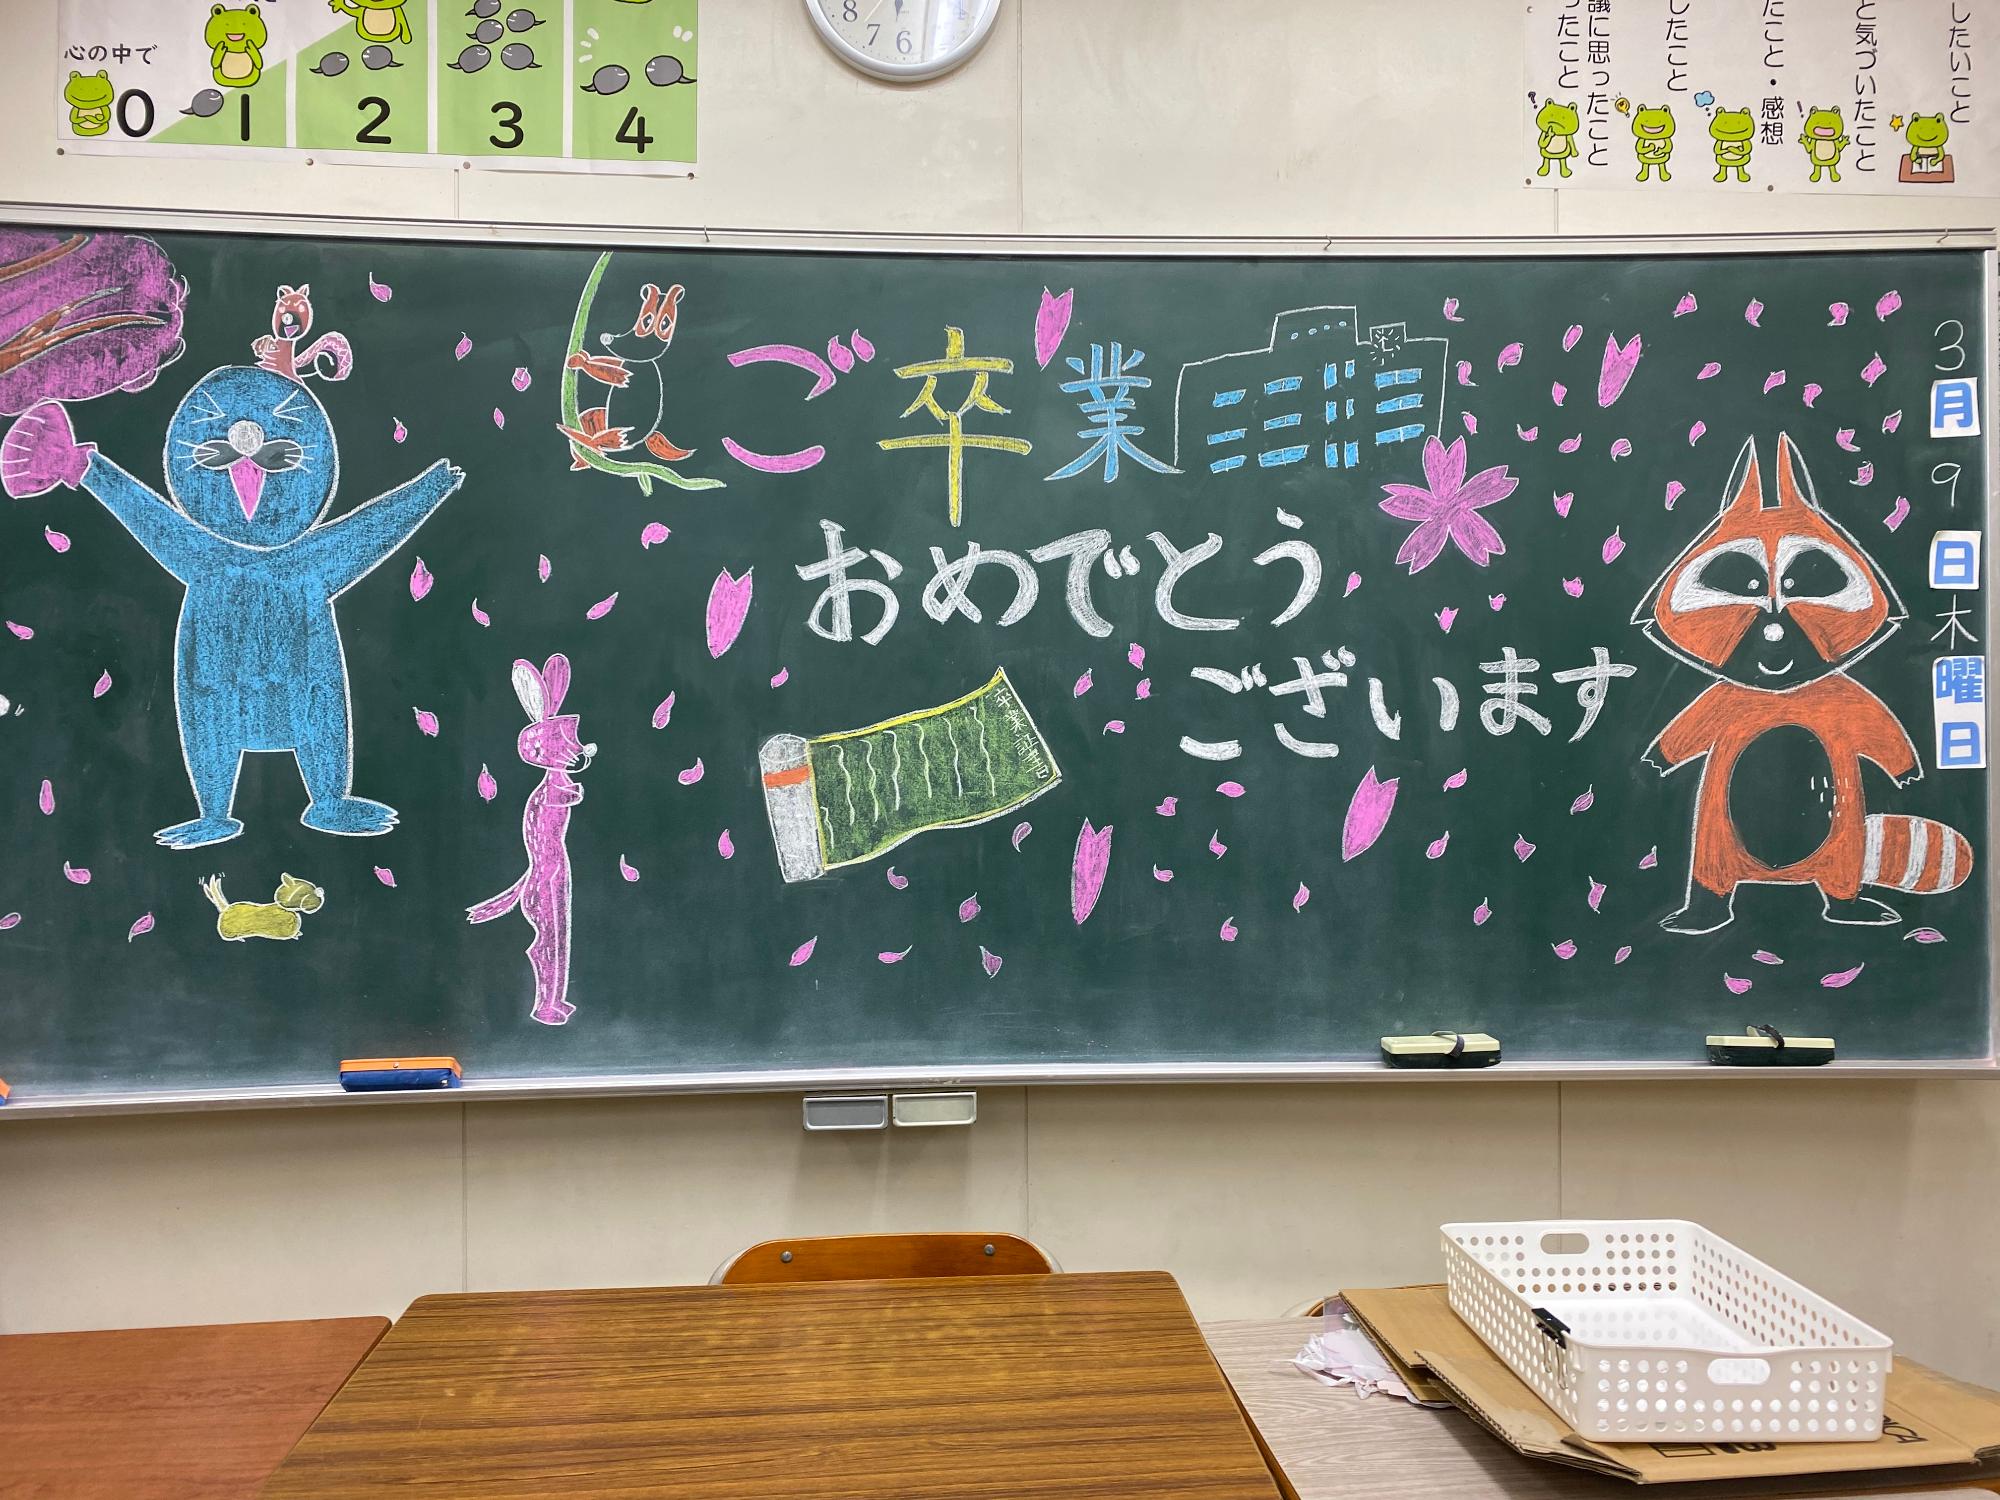 心の中で
0 1 2 3 4
8 7 6
したいこと
と気づいたこと
たこと・感想
したこと
議に思ったこと
ったこと
ご卒業
おめでとう
ございます
卒業証書
3月9日木曜日